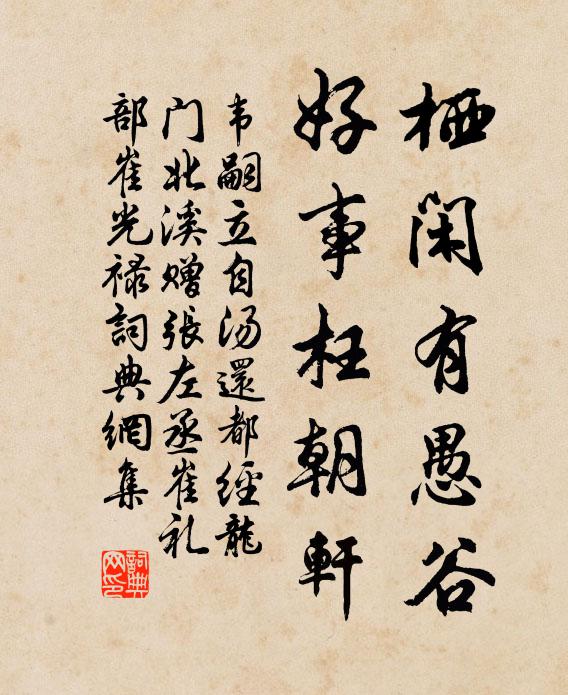 栖闲有愚谷
好事枉朝軒
韦嗣立自汤還都經龍
门北溪赠張左丞崔礼
部崔光禄詞典網集
詞典网印